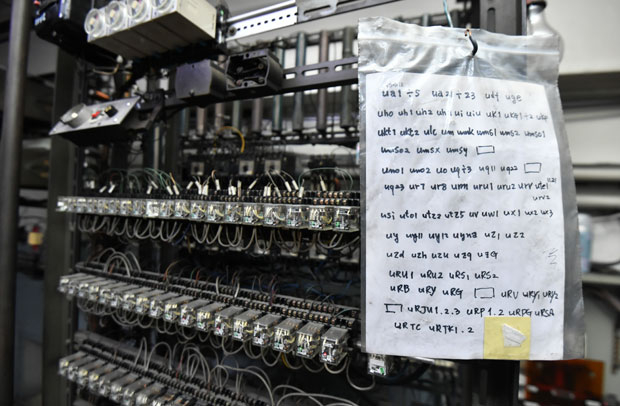 ua1 ÷ 5 ua21 ÷ 23 ud÷ uge
uho uh1 uh2 uhi ui uiu uk1
ukt1 ukt2 ulc um umk ums1 ums2 umso1
umso2 umsx umsy
umo1 umo2 uo uq÷3 uq11 uq22
uq23 ur7 ur8 urm uru1 uru2 urv
urv2
usi uto1 utz2 utz5 uv uw1 ux1 u2 u3
uy uy11 uy12 uyna uz1 uz2
uzd uzh uzu uzq uzG
uRU1 uRU2 uRS1 uRS2
uRB uRY uRG uRV uRY1
uRJU1.2.3 uRP1.2 uRPG uRSA
uRTC uRTK1.2